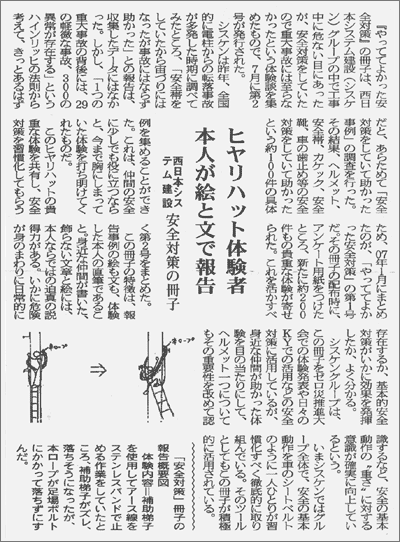 『やっててよかった安
全対策』の冊子は、西日
本システム建設(シスケ
ン)グループの中で工事
中に危ない目にあった
が、安全対策をしていた
ので重大事故には至らな
かったという体験談を集
めたもので、7月に第2
号が発行された。
シスケンは昨年、全国
的に電柱からの転落事故
が多発した時期に調べて
みたところ、「安全帯を
していたから宙づりには
なったが事故にはならず
助かった」との報告は、
収集したデータにはなか
った。しかし、「1つの
重大事故の背後には、29
の軽微な事故、300の
異常が存在する」という
ハインリッヒの法則から
考えて、きっとあるはず
だと、あらためて「安全
対策をしていて助かった
事例」の調査を行った。
その結果、ヘルメット、
安全帯、カケック、安全
靴、車の歯止め等の安全
対策をしていて助かった
という約100件の具体
ヒヤリハット体験者
本人が絵と文で報告
西日本シス
テム建設
安全対策の冊子
例を集めることができ
た。これは、仲間の安全
に少しでも役に立つなら
と、今まで胸にしまって
いた体験を打ち明けてく
れたものだ。
このヒヤリハットの貴
重な体験を共有し、安全
対策を習慣化してもらう
ため、07年1月にまとめ
たのが、「やっててよか
った安全対策」の第1号
だ。その冊子の配布時に、
アンケート用紙をつけた
ところ、新たに約200
件もの貴重な体験が寄せ
られた。これを活かすべ
く第2号をまとめた。
この冊子の特徴は、報
告事例の絵も文も、体験
した本人の直筆であるこ
と。身近な仲間が書いた、
飾らない文章と絵には、
本人ならではの迫真の説
得力がある。いかに危険
が身のまわりに日常的に
存在するか、基本的安全
対策がいかに効果を発揮
したか、よく分かる。
シスケングループは、
この冊子をゼロ災推進大
会での体験発表や日々の
KYでの活用などの安全
対策に活用しているが、
身近な仲間が助かった体
験を目の当たりにして、
ヘルメット一つについて
もその重要性を改めて認
識するなど、安全の基本
動作の〝重さ〟に対する
意識が確実に向上してい
るという。
いまシスケンではグル
ープ全体で、安全の基本
動作を車のシートベルト
のように一人ひとりが習
慣化すべく徹底的に取り
組んでいる。そのツール
としてもこの冊子が積極
的に活用されている。
「安全対策」冊子の
報告概要図
体験内容=補助梯子
を使用してアース線を
ステンレスバンドで止
める作業をしていたと
ころ、補助梯子がズレ、
落ちそうになったが、
本ロープが足場ボルト
にかかって落ちずにす
んだ。